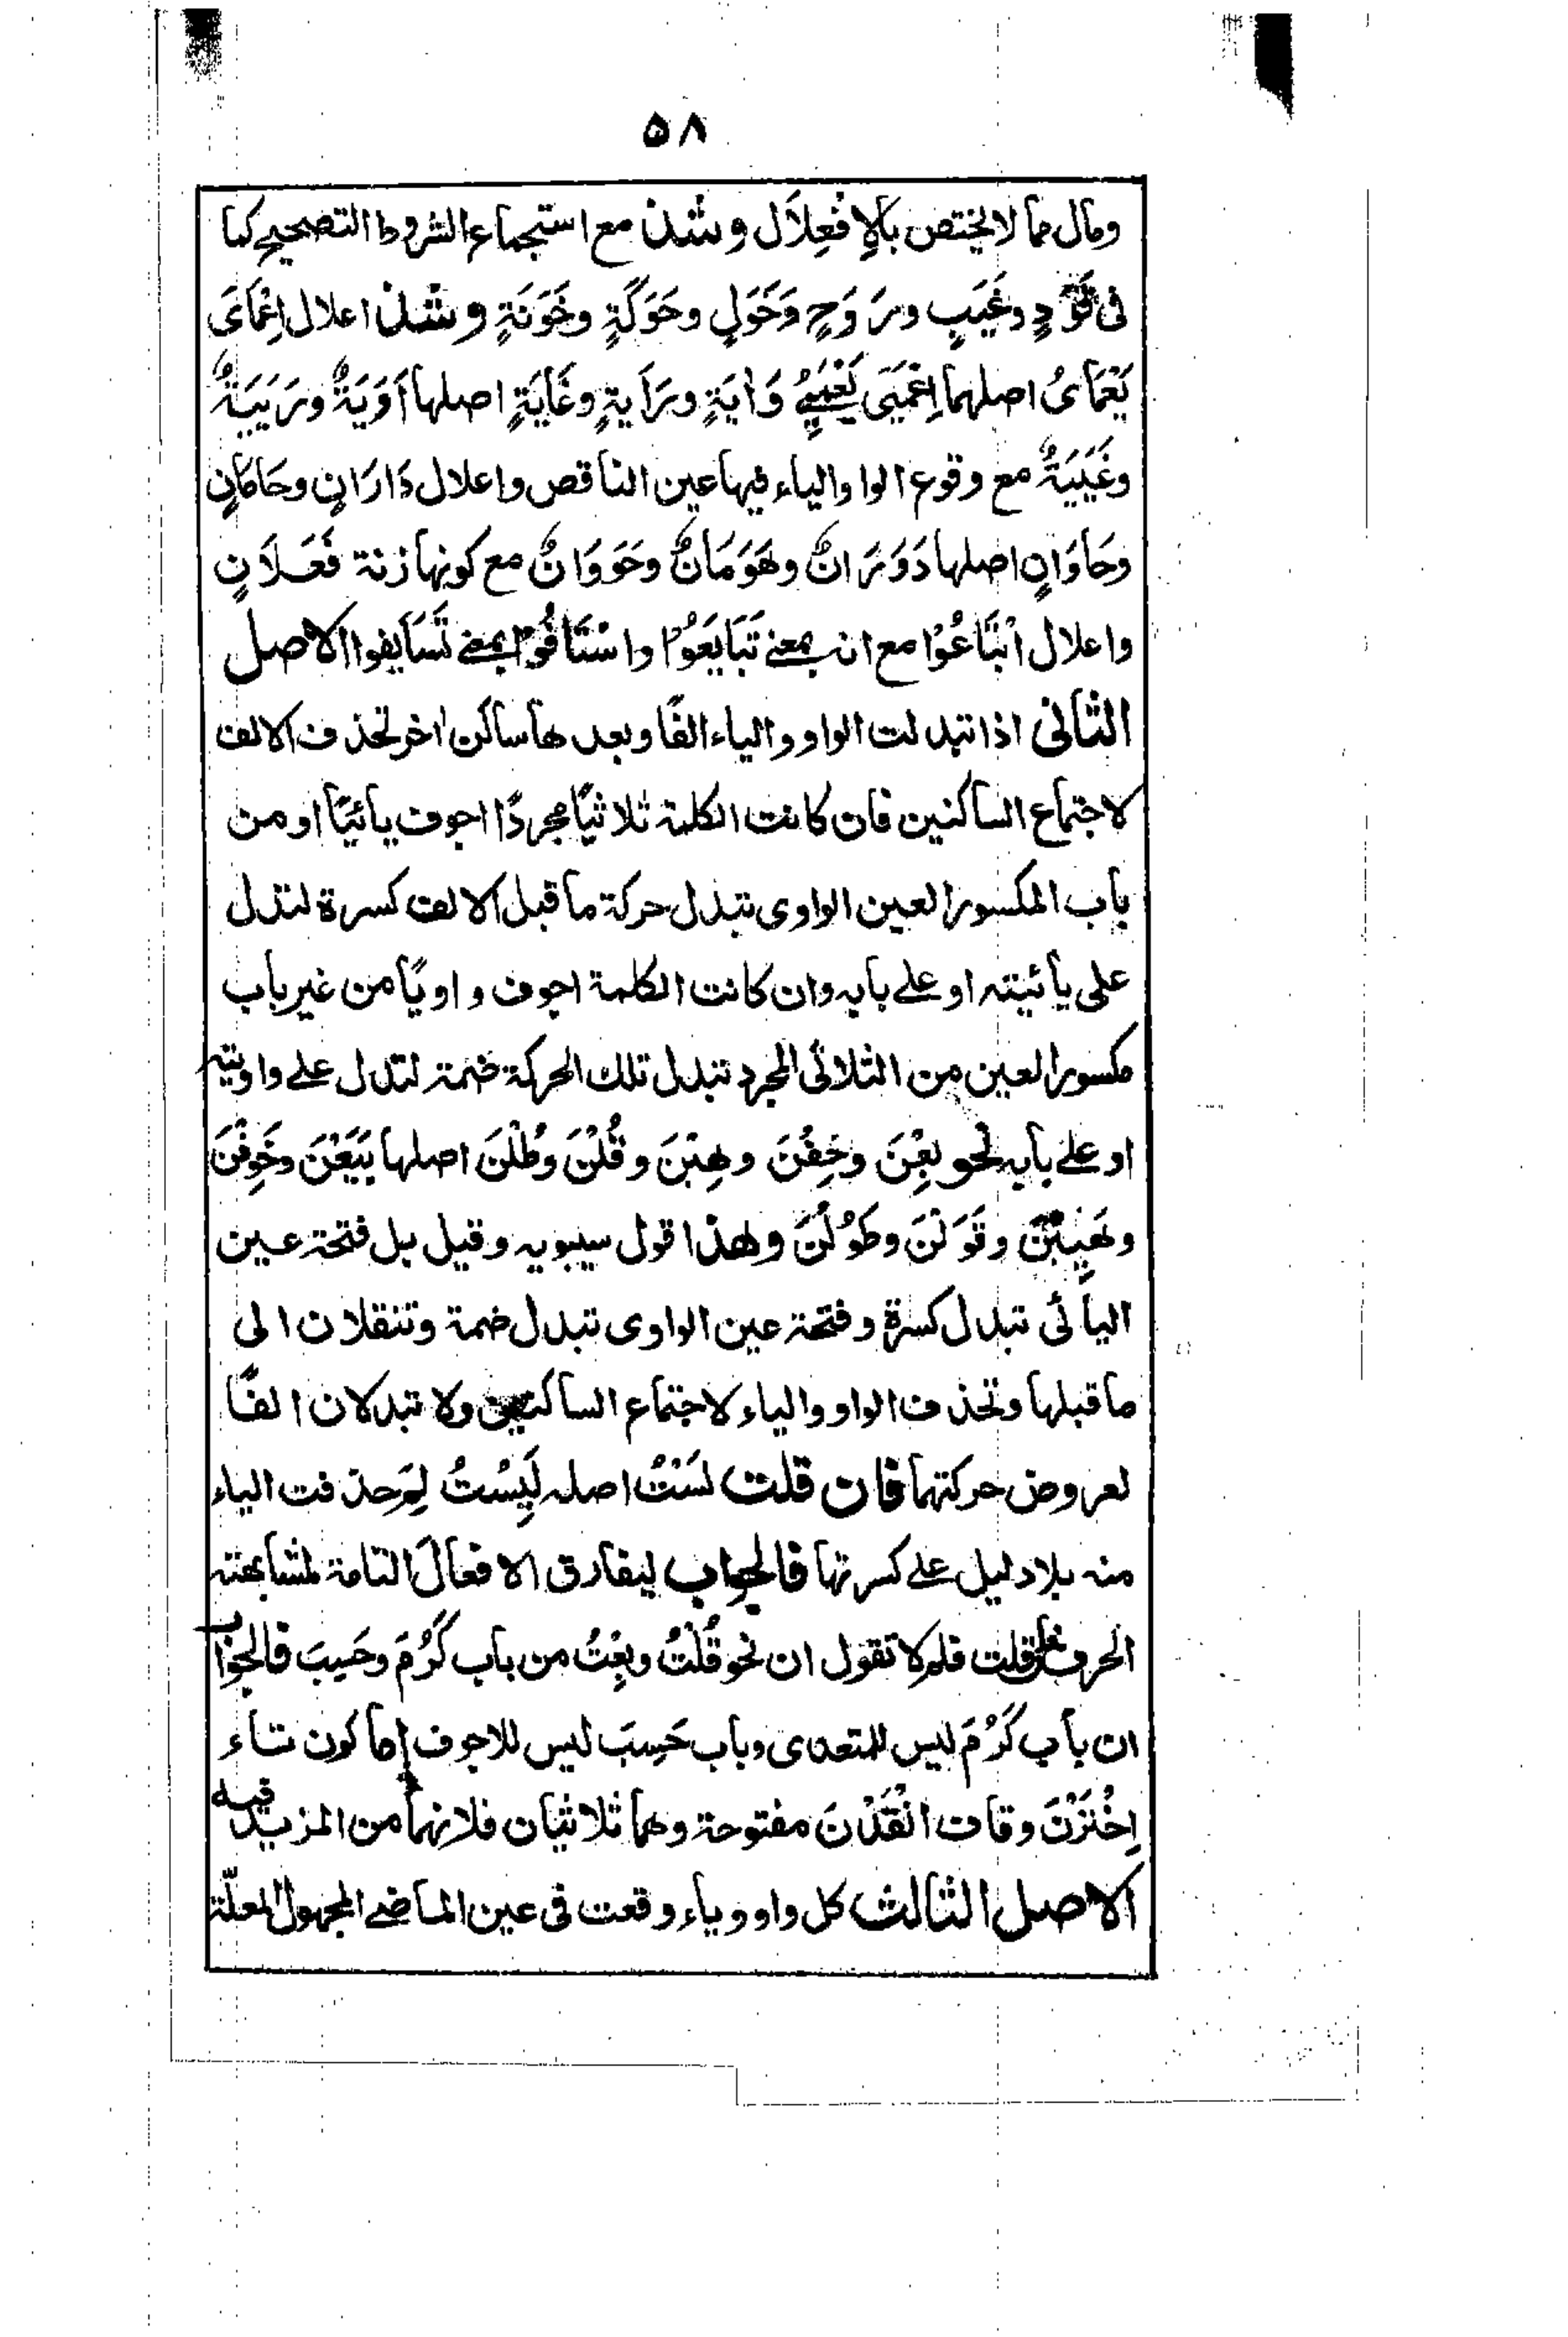 ٥٨
ومال مما لا يختص بالإفْعِلَال وشذ مع استجماع الشروط التصحيح كما
فى قَوَدٍ وغَيَبٍ ورَوَحٍ وَخَوَلٍ وحَوَكَةٍ وخَوَنَةٍ وشذ اعلال اِغْمَايَ
يَغْمَايُ اصلهما اِغْمَيَيَ يَغْمَيِيُ وَاٰيَةٍ ورَايةٍ وغَايَةٍ اصلها اَوَيَةٌ ورَيَيَةٌ
وغَيَيَةٌ مع وقوع الوا والياء فيها عين الناقص واعلال دَارَانٍ وحَامَانٍ
وحَاوَانٍ اصلها دَوَرَانٌ وهَوَمَانٌ وحَوَوَانٌ مع كونها زنة فَعَلَانٍ
واعلال ابْتَاعُوْا مع انه بمعنے تَبَايَعُوْا واسْتَافُوْا بمعنے تَسَايفوا الاصل
الثانى اذا تبدلت الواو والياء الفًا وبعدها ساكن اٰخر تحذف الالف
لاجتماع الساكنين فان كانت الكلمة ثلاثيًا مجردًا اجوف يائيًا او من
باب المكسور العين الواوى تبدل حركة ما قبل الالف كسرة لتدل
على يائيته او علے بابه وان كانت الكلمة اجوف واويًا من غير باب
مكسور العين من الثلاثى المجرد تبدل تلك الحركة ضمة لتدل علے واويته
او علے بابه نحو بِعْنَ وخِفْنَ وهِبْنَ وقُلْنَ وطُلْنَ اصلها بَيَعْنَ وخَوِفْنَ
وهَيِبْنَ وقَوَلْنَ وطَوُلْنَ وهذا قول سيبويه وقيل بل فتحة عين
اليائى تبدل كسرة وفتحة عين الواوى تبدل ضمة وتنقلان الى
ما قبلها وتحذف الواو والياء لاجتماع الساكنين ولا تبدلان الفًا
لعروض حركتهما فان قلت لَسْتُ اصله لَيِسْتُ لِمَ حذفت الياء
منه بلا دليل علے كسرتها فالجواب ليفارق الافعالَ التامة لمشابهته
الحرف فان قلت فلم لا تقول ان نحو قُلْتُ وبِعْتُ من باب كَرُمَ وحَسِبَ فالجواب
ان باب كَرُمَ ليس للمتعدى وباب حَسِبَ ليس للاجوف اما كون تاء
اِخْتَرْنَ وقاف انْقَدْنَ مفتوحة وهما ثلاثيان فلانهما من المزيد فيه
الاصل الثالث كل واو وياء وقعت فى عين الماضے المجهول المعلّة